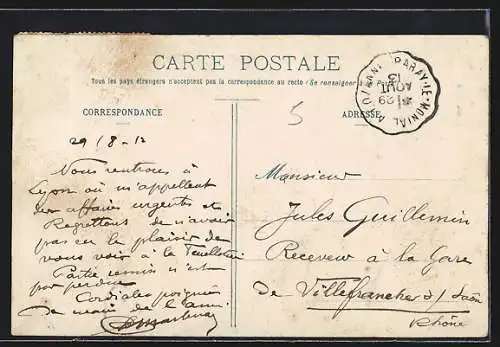 CARTE POSTALE
Tous les pays étrangers n'acceptent pas la correspondance au recto (Se renseigner à la Poste)
CORRESPONDANCE
ADRESSE
PARAY-LE-MONIAL A
29
AOUT
13
5
29/8-13
Nous rentrons à
Lyon où m'appellent
des affaires urgentes et
Regrettons de n'avoir
pas eu le plaisir de
vous voir à la
Partie remise n'est
pas perdue
Cordiale poignée
de main de l'ami
Monsieur
Jules Guillemin
Receveur à la Gare
de Villefranche s/ Saône
Rhône